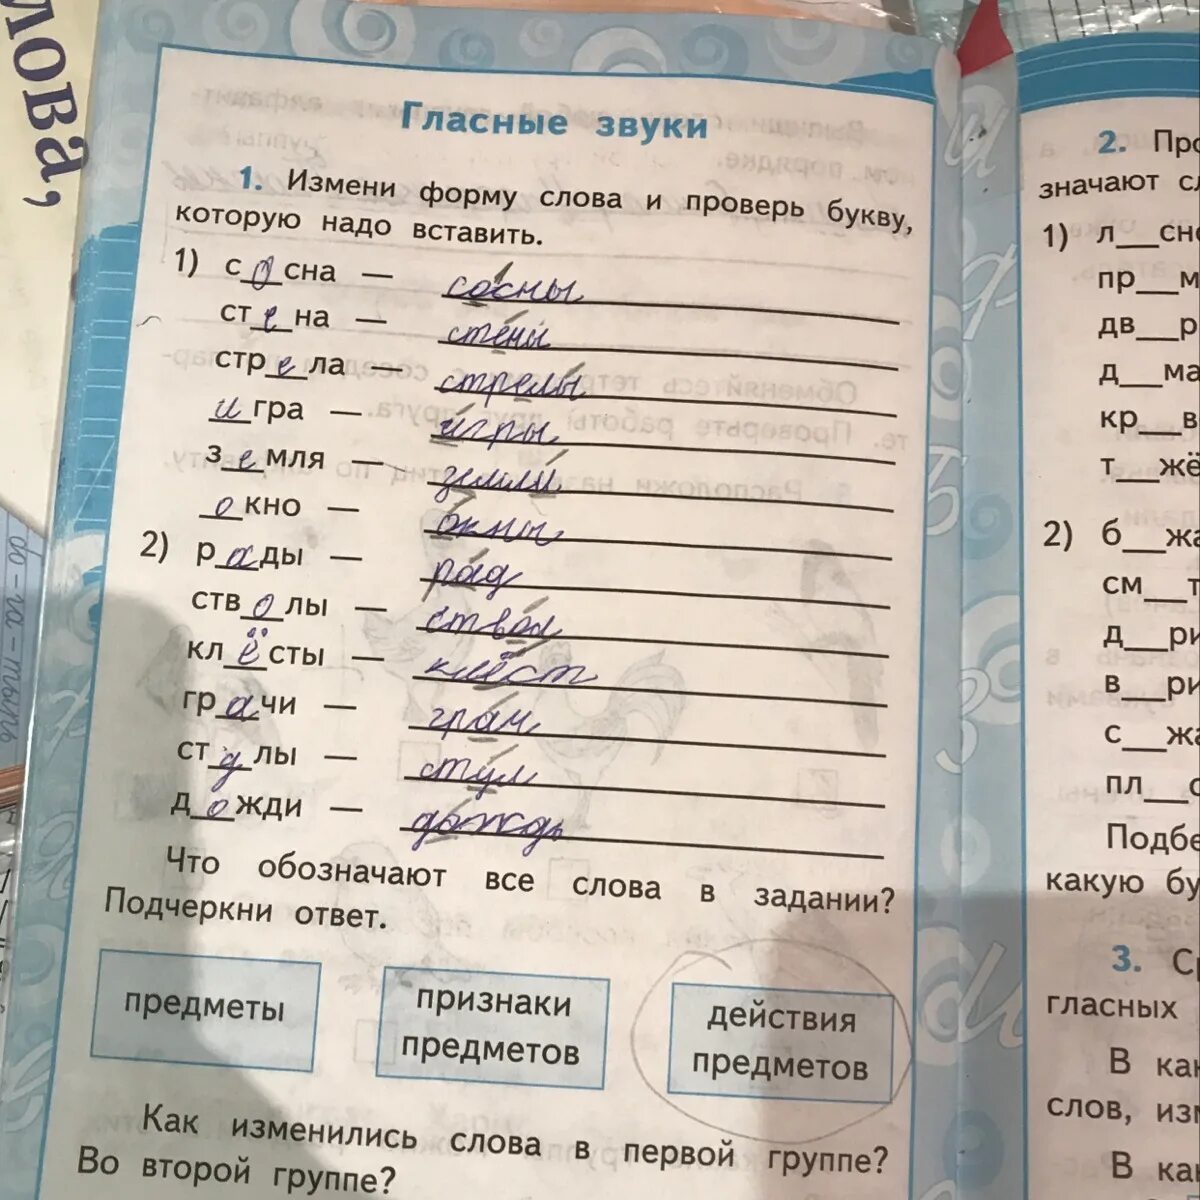 лова,
Гласные звуки
1. Измени форму слова и проверь букву,
которую надо вставить.
1) с_о_сна — сосны
ст_е_на — стены
стр_е_ла — стрелы
_и_гра — игры
з_е_мля — земли
_о_кно — окны
2) р_а_ды — рад
ств_о_лы — ствол
кл_ё_сты — клёст
гр_а_чи — грач
ст_у_лы — стул
д_о_жди — дождь
Что обозначают все слова в задании?
Подчеркни ответ.
предметы
признаки
предметов
действия
предметов
Как изменились слова в первой группе?
Во второй группе?
2. Про
значают сл
1) л__сно
пр__м
дв__р
д__ма
кр__в
т__жё
2) б__жа
см__т
д__ри
в__ри
с__жа
пл__с
Подбе
какую бу
3. Ср
гласных
В как
слов, изм
В как